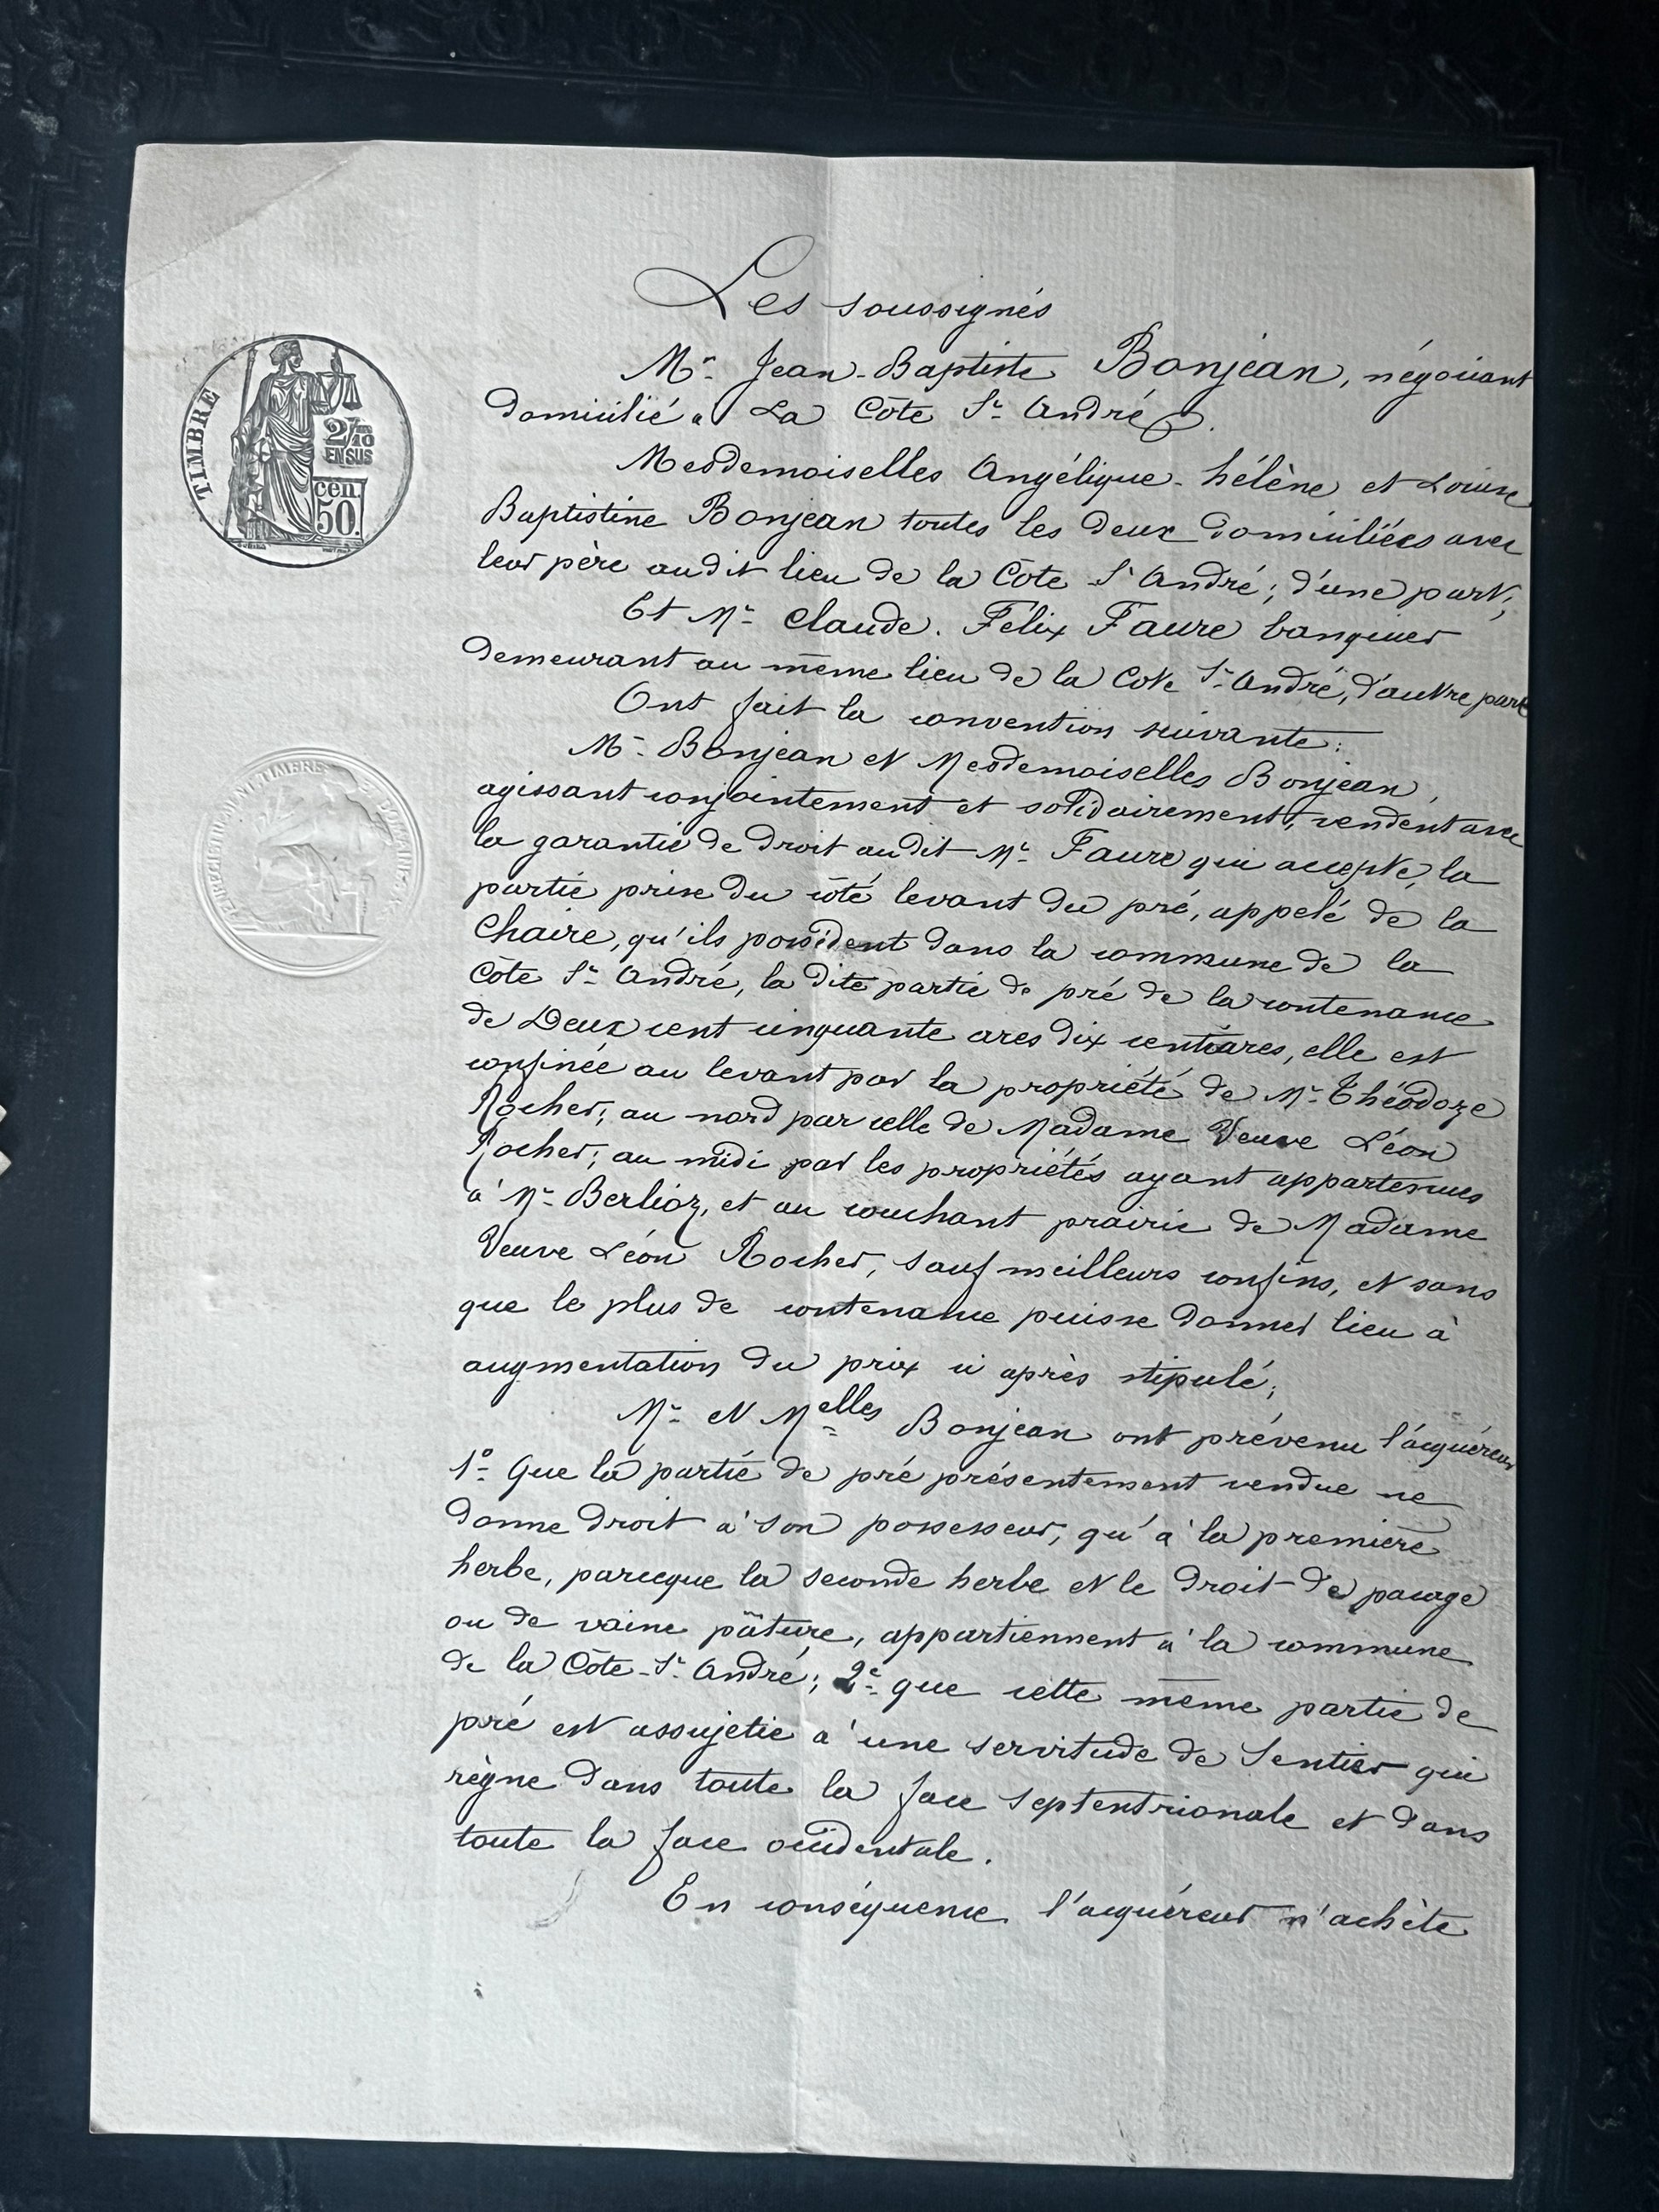 Les soussignés
Mr. Jean-Baptiste Bonjean, négociant
domicilié à La Côte St André.
Mesdemoiselles Angélique-hélène et Louise
Baptistine Bonjean toutes les deux domiciliées avec
leur père audit lieu de la Côte St André; d'une part,
Et Mr. Claude. Félix Faure banquier
demeurant au même lieu de la Cote St André, d'autre part
Ont fait la convention suivante:
Mr. Bonjean et Mesdemoiselles Bonjean,
agissant conjointement et solidairement, vendent avec
la garantie de droit audit Mr. Faure qui accepte, la
partie prise du côté levant du pré, appelé de la
Chaire, qu'ils possèdent dans la commune de la
Côte St André, la dite partie de pré de la contenance
de Deux cent cinquante ares dix centiares, elle est
confinée au levant par la propriété de Mr. Théodoze
Rocher; au nord par celle de Madame Veuve Léon
Rocher; au midi par les propriétés ayant appartenues
à Mr. Berlioz, et au couchant prairie de Madame
Veuve Léon Rocher, sauf meilleurs confins, et sans
que le plus de contenance puisse donner lieu à
augmentation du prix ci après stipulé;
Mr. et Melles Bonjean ont prévenu l'acquéreur
1º Que la partie de pré présentement vendue ne
donne droit à son possesseur, qu'à la première
herbe, parceque la seconde herbe et le droit de pacage
ou de vaine pâture, appartiennent à la commune
de la Côte-St André; 2º que cette même partie de
pré est assujetie à une servitude de Sentier qui
règne dans toute la face septentrionale et dans
toute la face occidentale.
En conséquence l'acquéreur n'achète
TIMBRE
2/10
EN SUS
cen.
50.
TIMBRE